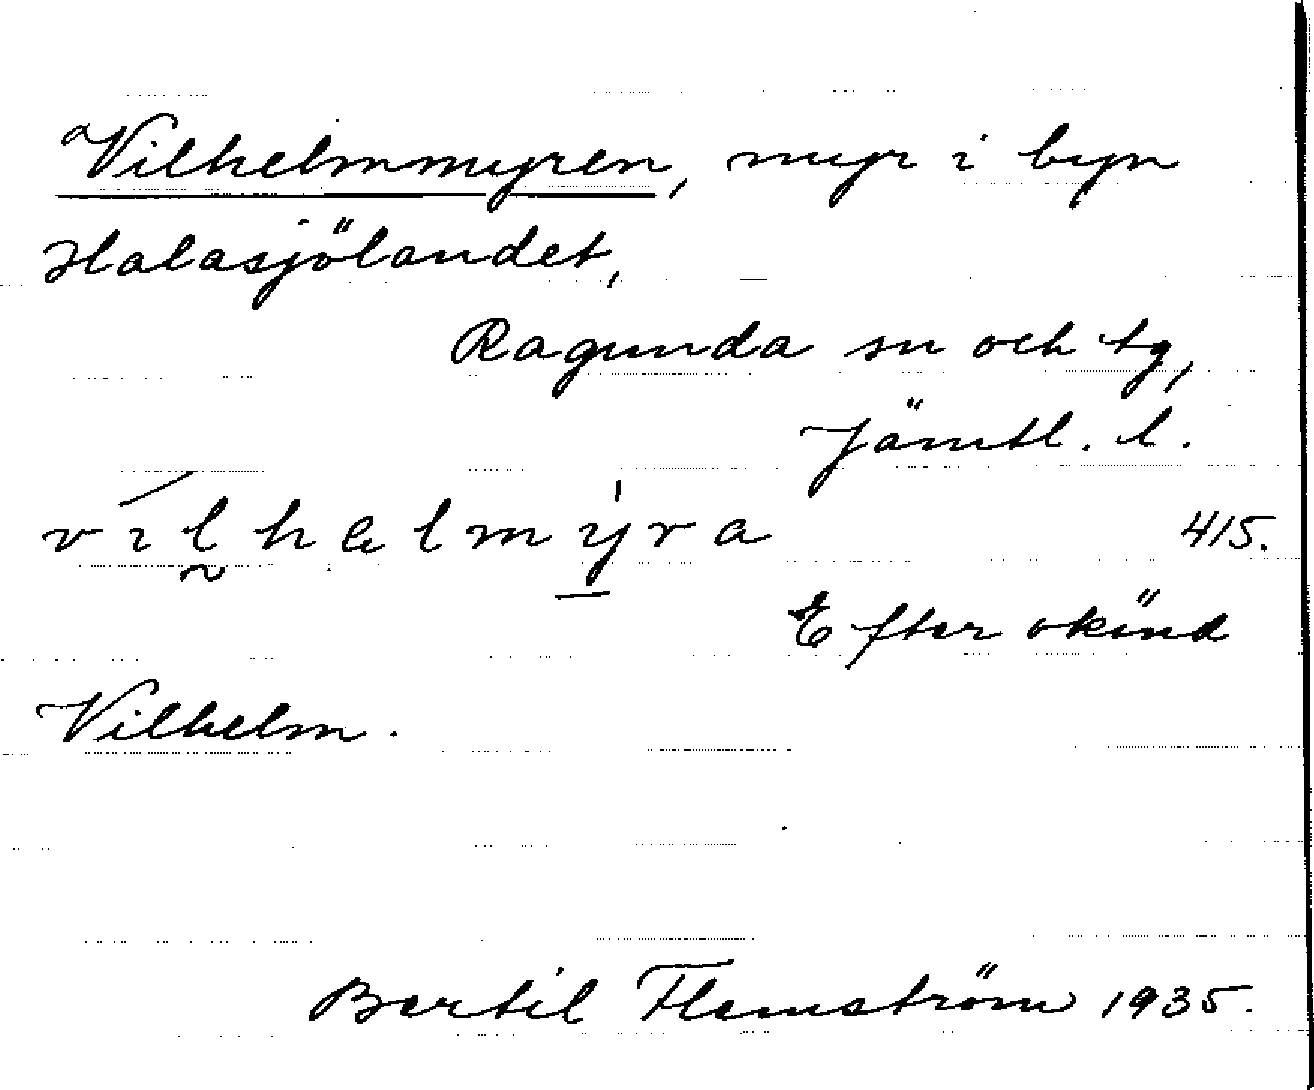 Vilhelmmyren, myr i byn
Halasjölandet,
Ragunda sn och tg,
Jämtl. l.
vílhelmy̍ra 415.
Efter okänd
Vilhelm.
Bertil Flemström 1935.